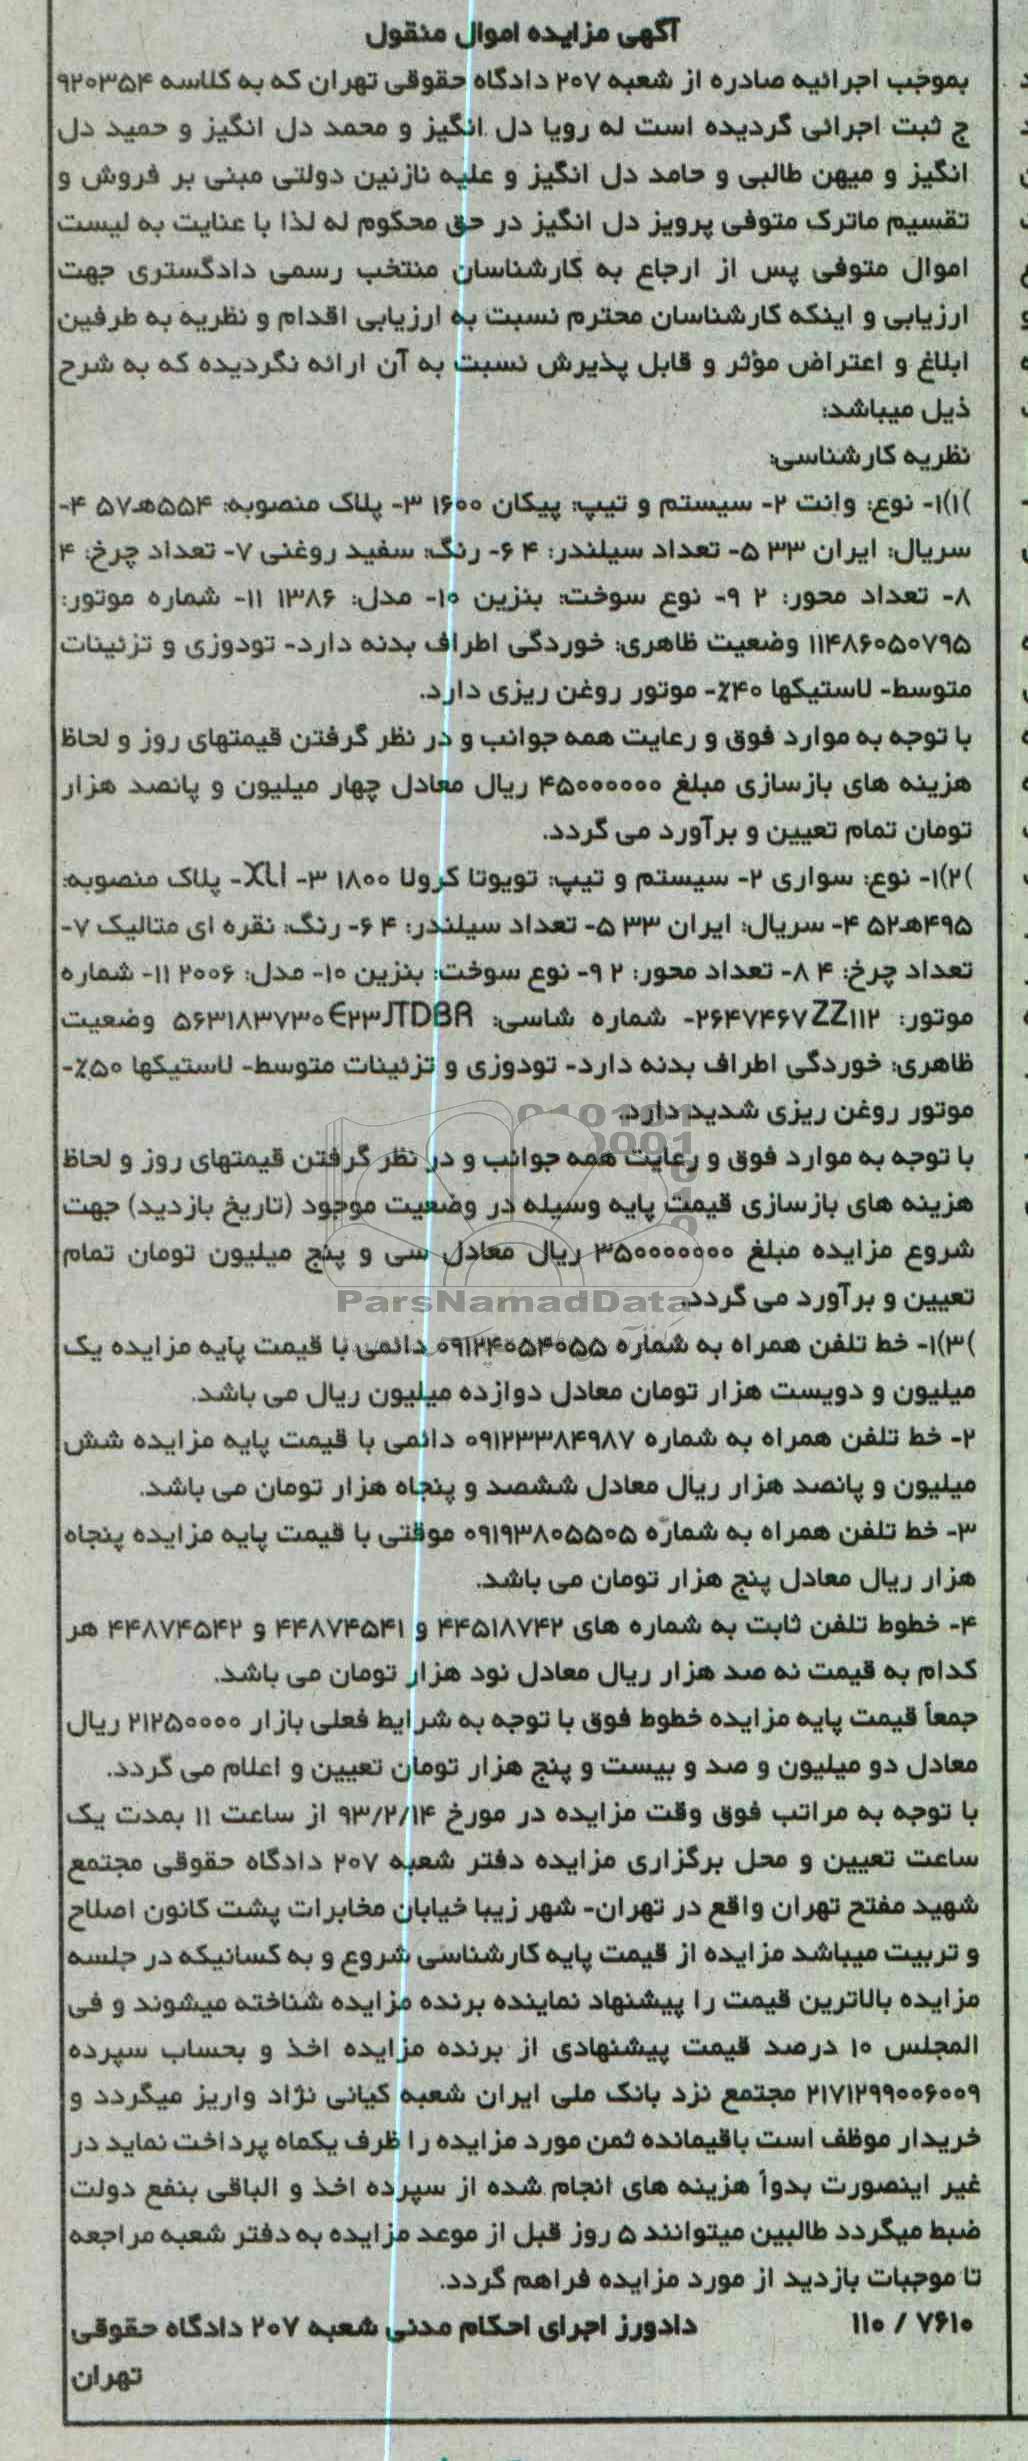 آگهی مزایده اموال منقول
بموجب اجرائیه صادره از شعبه ۲۰۷ دادگاه حقوقی تهران که به کلاسه ۹۲۰۳۵۴
ج ثبت اجرائی گردیده است له رویا دل انگیز و محمد دل انگیز و حمید دل
انگیز و میهن طالبی و حامد دل انگیز و علیه نازنین دولتی مبنی بر فروش و
تقسیم ماترک متوفی پرویز دل انگیز در حق محکوم له لذا با عنایت به لیست
اموال متوفی پس از ارجاع به کارشناسان منتخب رسمی دادگستری جهت
ارزیابی و اینکه کارشناسان محترم نسبت به ارزیابی اقدام و نظریه به طرفین
ابلاغ و اعتراض مؤثر و قابل پذیرش نسبت به آن ارائه نگردیده که به شرح
ذیل میباشد:
نظریه کارشناسی:
)۱)۱- نوع: وانت ۲- سیستم و تیپ: پیکان ۱۶۰۰ ۳- پلاک منصوبه: ۵۵۴هـ۵۷ ۴-
سریال: ایران ۳۳ ۵- تعداد سیلندر: ۴ ۶- رنگ: سفید روغنی ۷- تعداد چرخ: ۴
۸- تعداد محور: ۲ ۹- نوع سوخت: بنزین ۱۰- مدل: ۱۳۸۶ ۱۱- شماره موتور:
۱۱۴۸۶۰۵۰۷۹۵ وضعیت ظاهری: خوردگی اطراف بدنه دارد- تودوزی و تزئینات
متوسط- لاستیکها ۴۰٪- موتور روغن ریزی دارد.
با توجه به موارد فوق و رعایت همه جوانب و در نظر گرفتن قیمتهای روز و لحاظ
هزینه های بازسازی مبلغ ۴۵۰۰۰۰۰۰ ریال معادل چهار میلیون و پانصد هزار
تومان تمام تعیین و برآورد می گردد.
)۲)۱- نوع: سواری ۲- سیستم و تیپ: تویوتا کرولا ۱۸۰۰ XLI -۳- پلاک منصوبه:
۴۹۵هـ۵۲ ۴- سریال: ایران ۳۳ ۵- تعداد سیلندر: ۴ ۶- رنگ: نقره ای متالیک ۷-
تعداد چرخ: ۴ ۸- تعداد محور: ۲ ۹- نوع سوخت: بنزین ۱۰- مدل: ۲۰۰۶ ۱۱- شماره
موتور: ۲۶۴۷۴۶۷ZZ۱۱۲- شماره شاسی: ۵۶۳۱۸۳۷۳۰E۲۳JTDBR وضعیت
ظاهری: خوردگی اطراف بدنه دارد- تودوزی و تزئینات متوسط- لاستیکها ۵۰٪-
موتور روغن ریزی شدید دارد.
با توجه به موارد فوق و رعایت همه جوانب و در نظر گرفتن قیمتهای روز و لحاظ
هزینه های بازسازی قیمت پایه وسیله در وضعیت موجود (تاریخ بازدید) جهت
شروع مزایده مبلغ ۳۵۰۰۰۰۰۰۰ ریال معادل سی و پنج میلیون تومان تمام
تعیین و برآورد می گردد.
ParsNamadData
)۳)۱- خط تلفن همراه به شماره ۰۹۱۲۴۰۵۴۰۵۵ دائمی با قیمت پایه مزایده یک
میلیون و دویست هزار تومان معادل دوازده میلیون ریال می باشد.
۲- خط تلفن همراه به شماره ۰۹۱۲۳۳۸۴۹۸۷ دائمی با قیمت پایه مزایده شش
میلیون و پانصد هزار ریال معادل ششصد و پنجاه هزار تومان می باشد.
۳- خط تلفن همراه به شماره ۰۹۱۹۳۸۰۵۵۰۵ موقتی با قیمت پایه مزایده پنجاه
هزار ریال معادل پنج هزار تومان می باشد.
۴- خطوط تلفن ثابت به شماره های ۴۴۵۱۸۷۴۲ و ۴۴۸۷۴۵۴۱ و ۴۴۸۷۴۵۴۲ هر
کدام به قیمت نه صد هزار ریال معادل نود هزار تومان می باشد.
جمعاً قیمت پایه مزایده خطوط فوق با توجه به شرایط فعلی بازار ۲۱۲۵۰۰۰۰ ریال
معادل دو میلیون و صد و بیست و پنج هزار تومان تعیین و اعلام می گردد.
با توجه به مراتب فوق وقت مزایده در مورخ ۹۳/۲/۱۴ از ساعت ۱۱ بمدت یک
ساعت تعیین و محل برگزاری مزایده دفتر شعبه ۲۰۷ دادگاه حقوقی مجتمع
شهید مفتح تهران واقع در تهران- شهر زیبا خیابان مخابرات پشت کانون اصلاح
و تربیت میباشد مزایده از قیمت پایه کارشناسی شروع و به کسانیکه در جلسه
مزایده بالاترین قیمت را پیشنهاد نماینده برنده مزایده شناخته میشوند و فی
المجلس ۱۰ درصد قیمت پیشنهادی از برنده مزایده اخذ و بحساب سپرده
۲۱۷۱۲۹۹۰۰۶۰۰۹ مجتمع نزد بانک ملی ایران شعبه کیانی نژاد واریز میگردد و
خریدار موظف است باقیمانده ثمن مورد مزایده را ظرف یکماه پرداخت نماید در
غیر اینصورت بدواً هزینه های انجام شده از سپرده اخذ و الباقی بنفع دولت
ضبط میگردد طالبین میتوانند ۵ روز قبل از موعد مزایده به دفتر شعبه مراجعه
تا موجبات بازدید از مورد مزایده فراهم گردد.
۱۱۰ / ۷۶۱۰ دادورز اجرای احکام مدنی شعبه ۲۰۷ دادگاه حقوقی
تهران